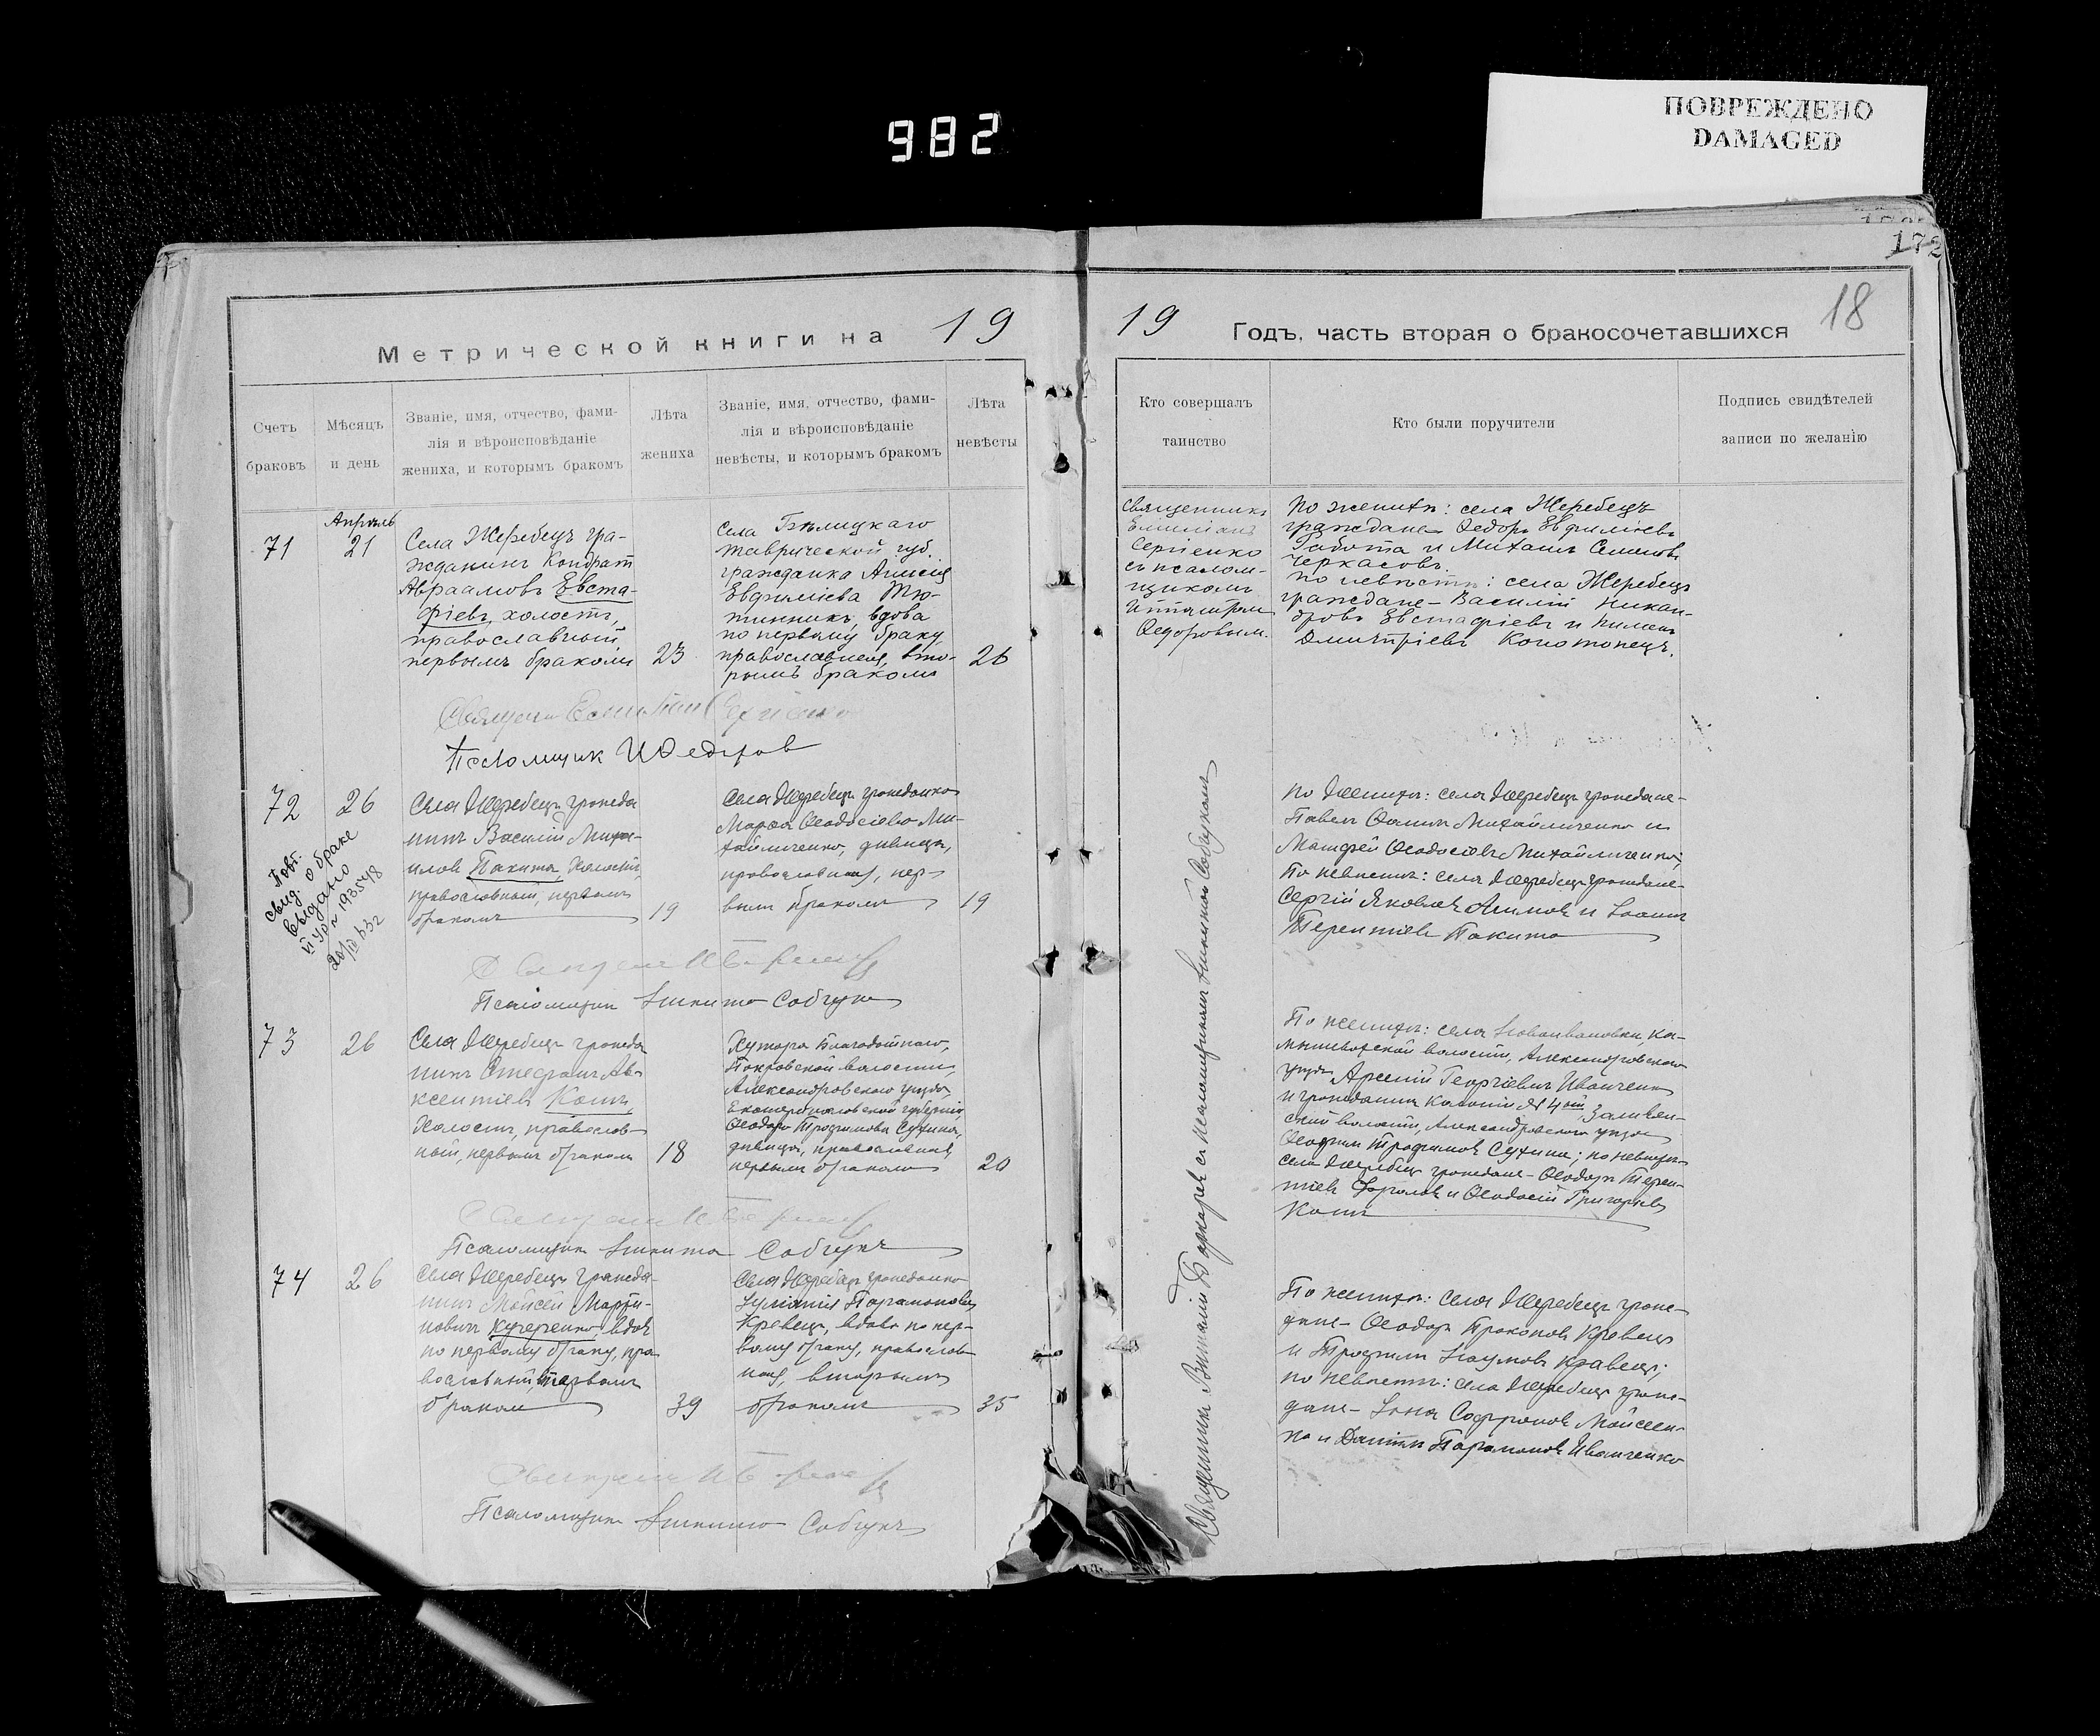 982
ПОВРЕЖДЕНО
DAMAGED
172
18
Метрической книги на 19
19 Годъ, часть вторая о бракосочетавшихся
Счетъ
браковъ
Мѣсяцъ
и день
Званіе, имя, отчество, фами-
лія и вѣроисповѣданіе
жениха, и которымъ бракомъ
Лѣта
жениха
Званіе, имя, отчество, фами-
лія и вѣроисповѣданіе
невѣсты, и которымъ бракомъ
Лѣта
невѣсты
Кто совершалъ
таинство
Кто были поручители
Подпись свидѣтелей
записи по желанію
71
Апрѣль
21
Села Жеребецъ гра-
жданинъ Кондрат
Авраамовъ Евста-
фіевъ, холостъ,
православный,
первымъ бракомъ
23
Села Бѣлицкаго
Таврической губ.
гражданка Анисія
Евфиміева Тю-
тинникъ, вдова
по первому браку
православная, вто-
рымъ бракомъ
26
Священникъ
Емиліанъ
Сергіенко
съ псалом-
щикомъ
Федоровым.
По женихѣ: села Жеребецъ
граждане Федоръ Евфиміевъ
Работа и Михаилъ Семеновъ
Черкасовъ.
по невѣстѣ: села Жеребецъ
граждане – Василій Никан-
дровъ Евстафіевъ и Пименъ
Дмитріевъ Конотопецъ.
Псаломщик И Федоров
72
26
Повт.
свид. о браке
выдано
193548
Села Жеребецъ гражда
нинъ Василій Миха-
иловъ Пакита, холостъ,
православный, первымъ
бракомъ
19
Села Жеребецъ гражданка
Марѳа Ѳеодосіева Ми-
хайличенко, дѣвица,
православная, пер-
вымъ бракомъ
19
По женихѣ: села Жеребецъ граждане –
Павелъ Ѳоминъ Михайличенко и
Матѳей Ѳеодосіевъ Михайличенко;
По невѣстѣ: села Жеребецъ граждане –
Сергій Яковлевъ Акимовъ и Іоаннъ
Терентіевъ Пакита
Псаломщикъ Никита Собчукъ
73
26
Села Жеребецъ гражда
нинъ Стефанъ Ав-
ксентіевъ Коть,
холостъ, православ-
ный, первымъ бракомъ
18
Хутора Благодатнаго,
Покровской волости,
Александровскаго уѣзда,
Екатеринославской губерніи
Ѳеодора Трофимова Сухина,
дѣвица, православная,
первымъ бракомъ
20
По женихѣ: села Новоивановки, Ка-
мышеватской волости, Александровскаго
уѣзда Арсеній Георгіевъ Иванченко
и гражданинъ Колоніи № 4ой
скаго волости, Александровскаго уѣзда
Трофимовъ Сухина; по невѣстѣ
села Жеребецъ граждане – Ѳеодоръ Терен-
тіевъ Фроловъ и Ѳеодосій Григорьевъ
Коть
Псаломщикъ Никита Собчукъ
74
26
Села Жеребецъ гражда-
нинъ Мойсей Марти-
новичъ Кучеренко, вдов
по первому браку, пра
вославный,
бракомъ
39
Села Жеребецъ гражданка
Іуліанія Парамонова
Кравецъ, вдова по пер-
вому браку, православ
ная, вторымъ
бракомъ
35
По женихѣ: села Жеребецъ граж-
дане – Ѳеодоръ Прокоповъ Кравецъ
и Трофимъ Наумовъ Кравецъ;
по невѣстѣ: села Жеребецъ граж-
дане – Іона Софроновъ Мойсеен-
ко и Парамоновъ Иванченко
Псаломщикъ Никита Собчукъ
Священникъ Виталій Боржаревъ съ псаломщикомъ Никитой Собчукомъ